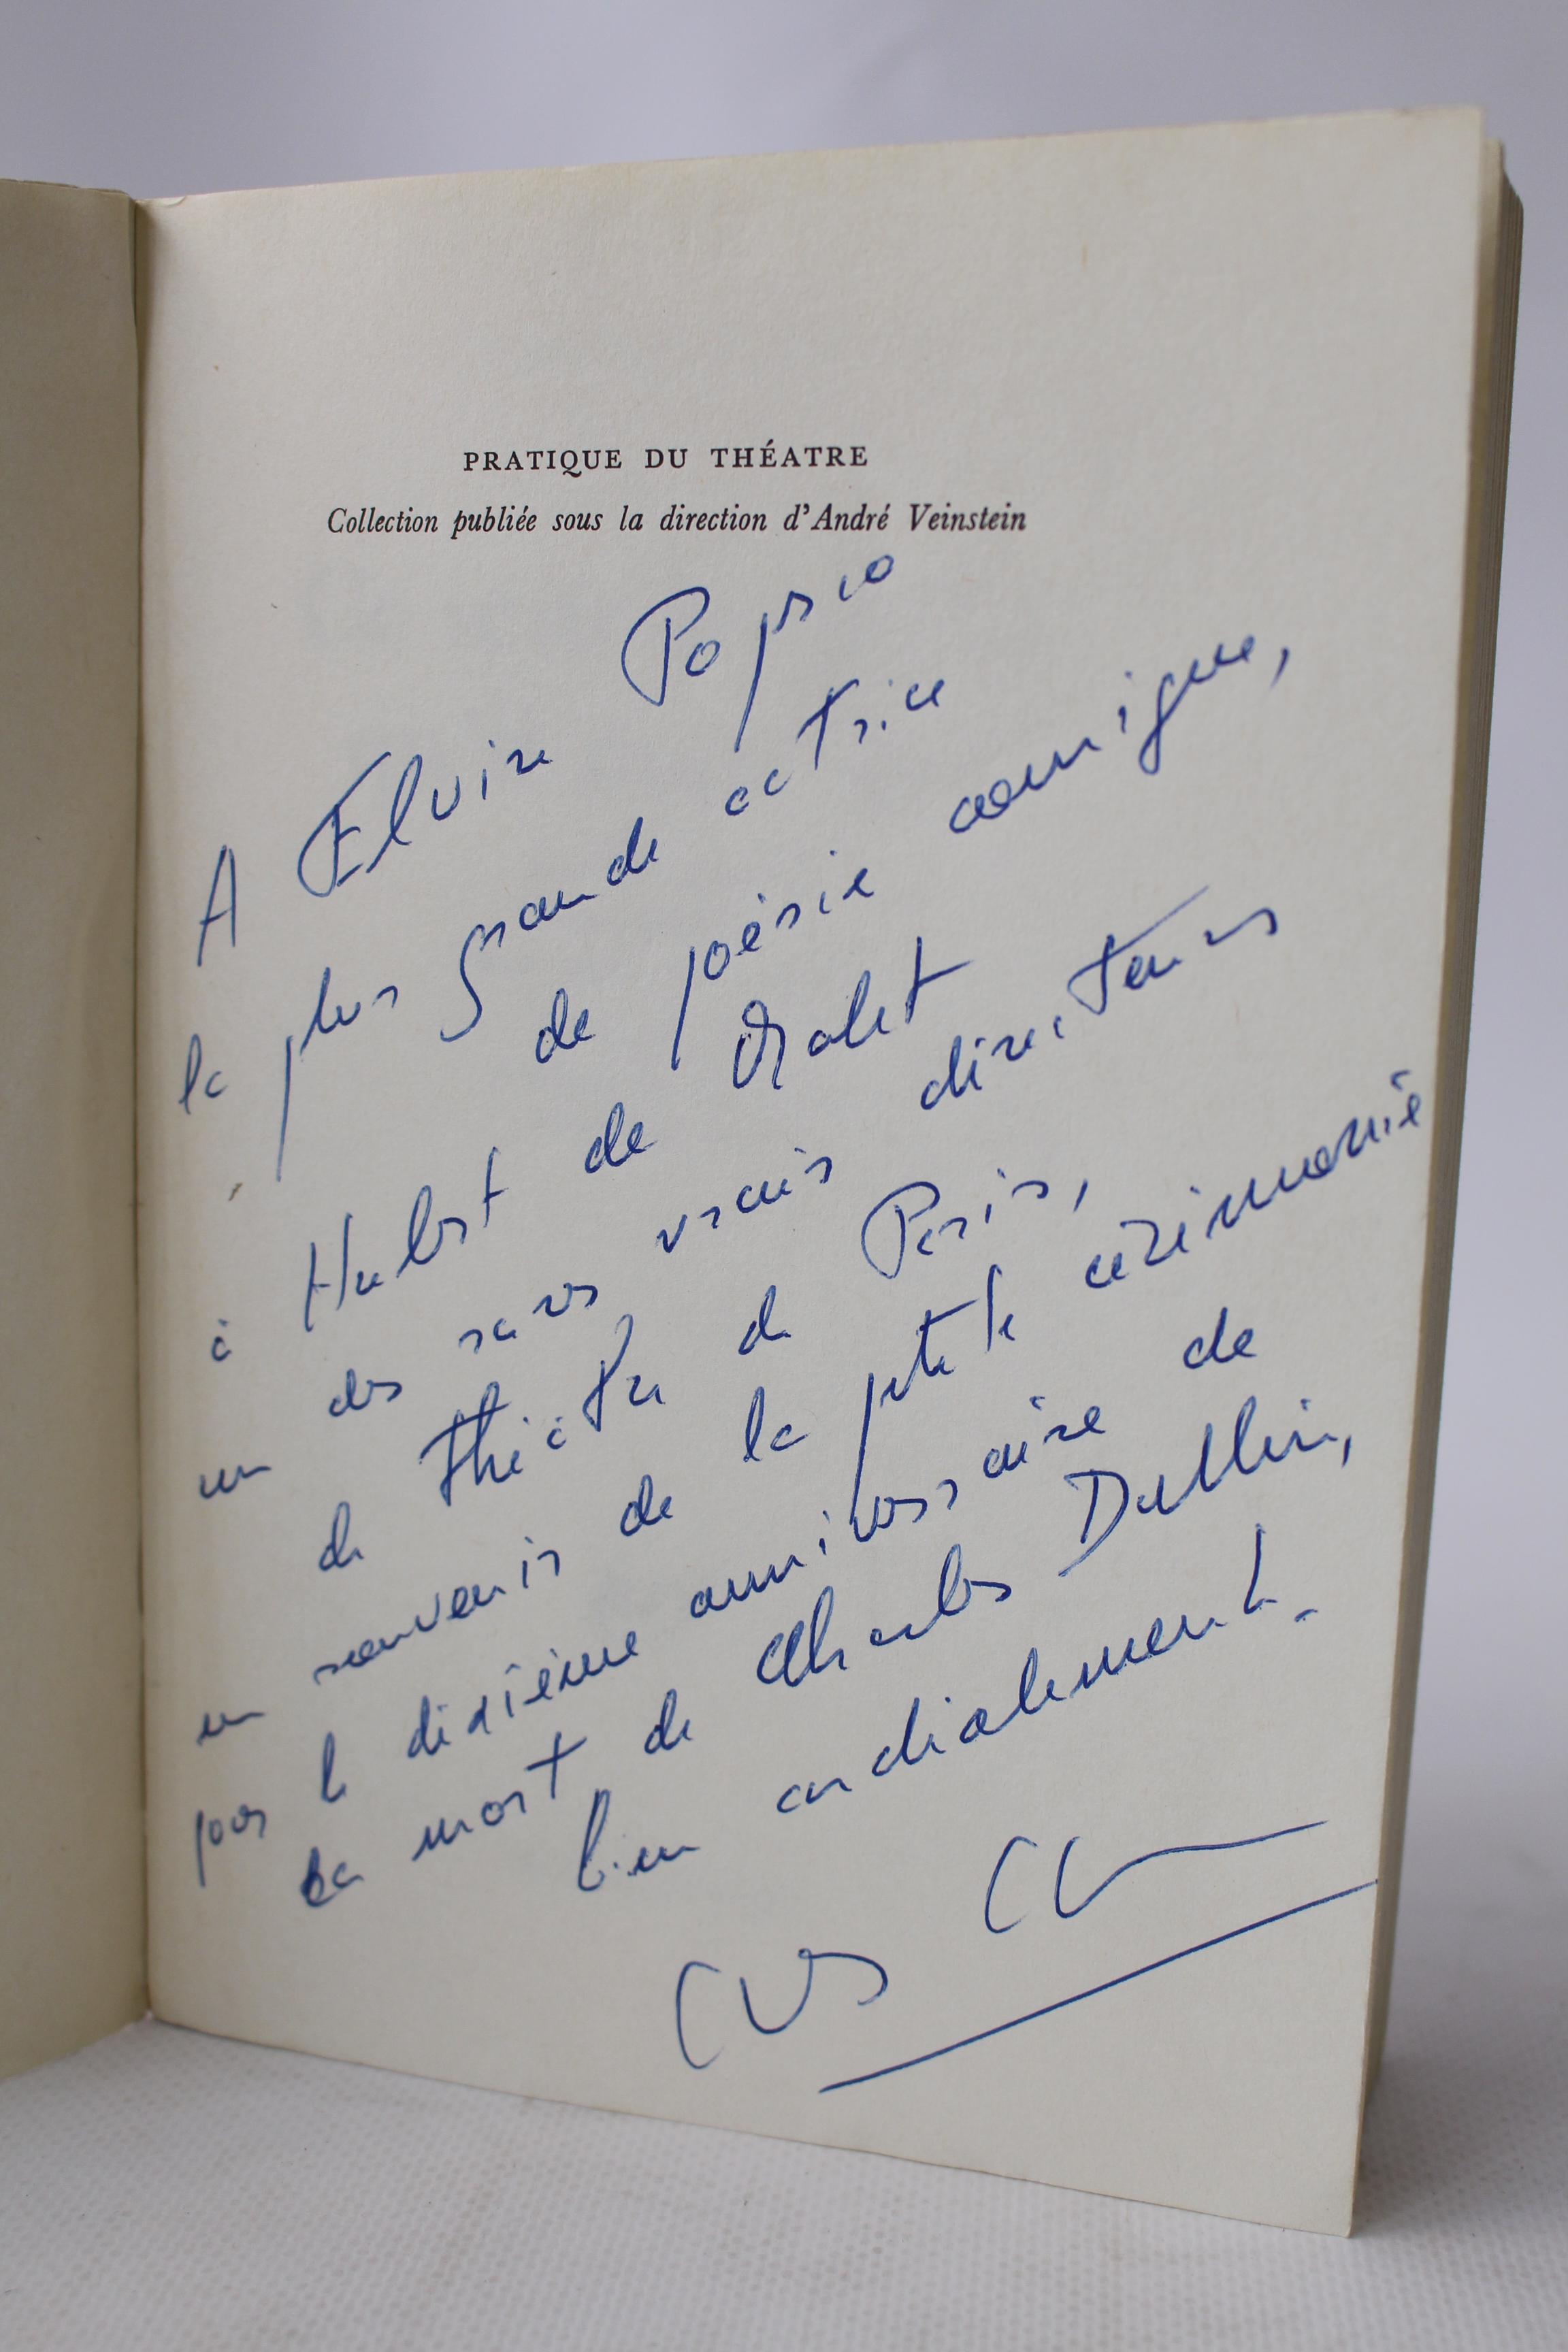 PRATIQUE DU THÉATRE
Collection publiée sous la direction d'André Veinstein
A Elvire Popesco
la plus grande actrice
de poésie comique,
à Hubert de Malet
un des rares vrais directeurs
de théâtre de Paris,
en souvenir de la petite cérimonie
pour le dixième anniversaire de
la mort de Charles Dullin,
bien cordialement.